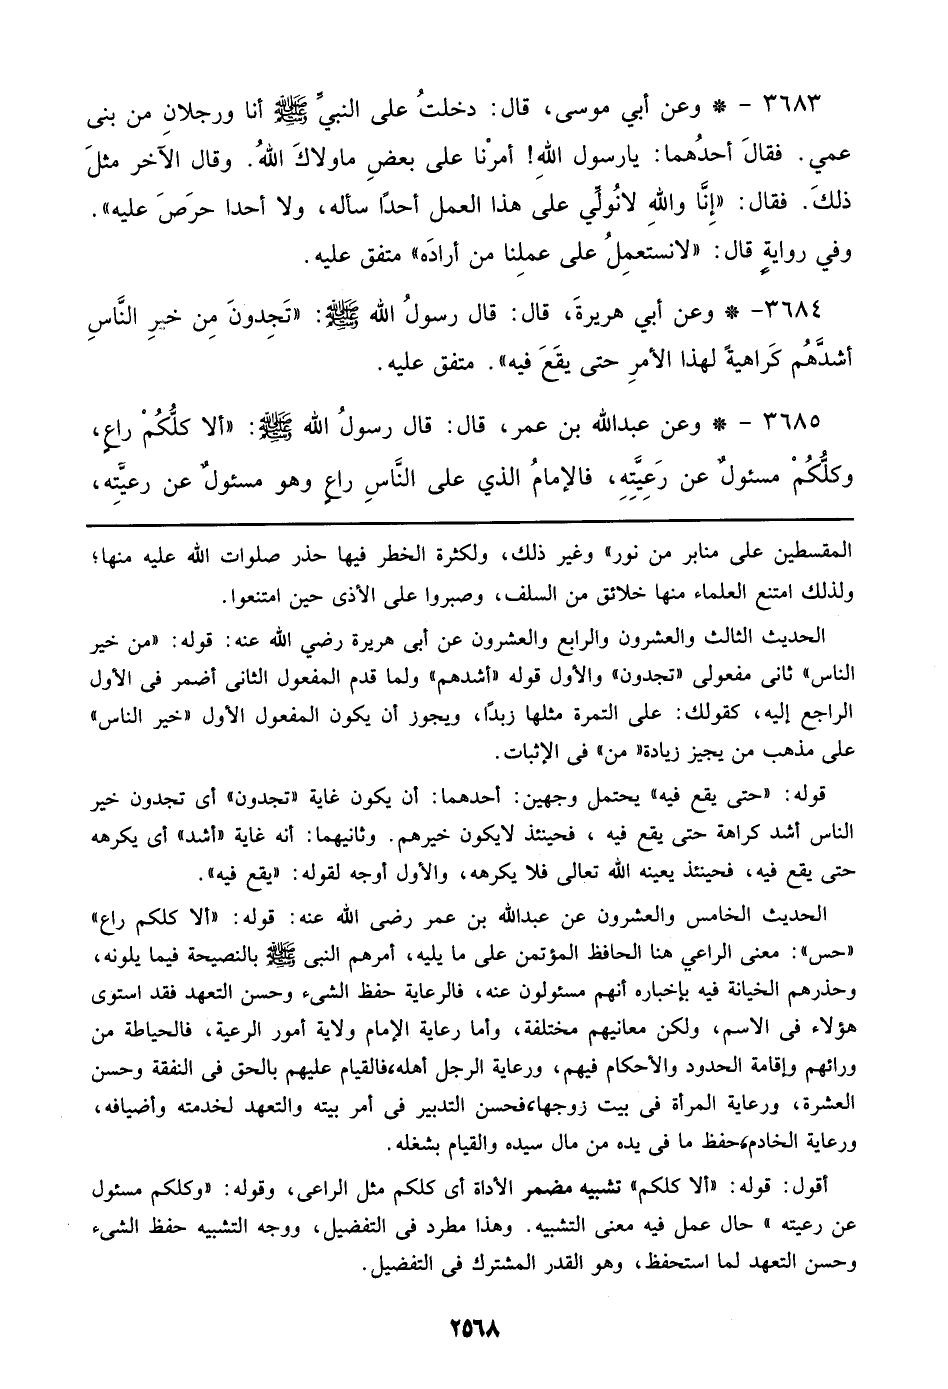 ٣٦٨٣ – * وعن أبي موسى، قال: دخلتُ على النبيِّ ﷺ أنا ورجلانِ من بنى
عمي. فقالَ أحدُهما: يارسول اللهِ! أمرْنا على بعضِ ماولاكَ اللهُ. وقال الآخر مثلَ
ذلكَ. فقال: «إنَّا واللهِ لانُولِّي على هذا العمل أحدًا سأله، ولا أحدا حرَصَ عليه».
وفي روايةٍ قال: «لانستعمِلُ على عملِنا من أرادَه» متفق عليه.
٣٦٨٤– * وعن أبي هريرةَ، قال: قال رسولُ الله ﷺ: «تَجِدونَ مِن خيرِ النَّاسِ
أشدَّهُم كَراهيةً لهذا الأمرِ حتى يقَعَ فيه». متفق عليه.
٣٦٨٥ – * وعن عبدالله بن عمر، قال: قال رسولُ الله ﷺ: «ألا كلُّكُمْ راعٍ،
وكلُّكُمْ مسئولٌ عن رَعِيَّتِهِ، فالإمامُ الذي على النَّاسِ راعٍ وهو مسئولٌ عن رعيَّتِه،
المقسطين على منابر من نور» وغير ذلك، ولكثرة الخطر فيها حذر صلوات الله عليه منها؛
ولذلك امتنع العلماء منها خلائق من السلف، وصبروا على الأذى حين امتنعوا.
الحديث الثالث والعشرون والرابع والعشرون عن أبى هريرة رضي الله عنه: قوله: «من خير
الناس» ثانى مفعولى «تجدون» والأول قوله «أشدهم» ولما قدم المفعول الثانى أضمر فى الأول
الراجع إليه، كقولك: على التمرة مثلها زبدًا، ويجوز أن يكون المفعول الأول «خير الناس»
على مذهب من يجيز زيادة« من» فى الإثبات.
قوله: «حتى يقع فيه» يحتمل وجهين: أحدهما: أن يكون غاية «تجدون» أى تجدون خير
الناس أشد كراهة حتى يقع فيه ، فحينئذ لايكون خيرهم. وثانيهما: أنه غاية «أشد» أى يكرهه
حتى يقع فيه، فحينئذ يعينه الله تعالى فلا يكرهه، والأول أوجه لقوله: «يقع فيه».
الحديث الخامس والعشرون عن عبدالله بن عمر رضى الله عنه: قوله: «ألا كلكم راع»
«حس»: معنى الراعي هنا الحافظ المؤتمن على ما يليه، أمرهم النبى ﷺ بالنصيحة فيما يلونه،
وحذرهم الخيانة فيه بإخباره أنهم مسئولون عنه، فالرعاية حفظ الشىء وحسن التعهد فقد استوى
هؤلاء فى الاسم، ولكن معانيهم مختلفة، وأما رعاية الإمام ولاية أمور الرعية، فالحياطة من
ورائهم وإقامة الحدود والأحكام فيهم، ورعاية الرجل أهله،فالقيام عليهم بالحق فى النفقة وحسن
العشرة، ورعاية المرأة فى بيت زوجها،فحسن التدبير فى أمر بيته والتعهد لخدمته وأضيافه،
ورعاية الخادم،حفظ ما فى يده من مال سيده والقيام بشغله.
أقول: قوله: «ألا كلكم» تشبيه مضمر الأداة أى كلكم مثل الراعى، وقوله: «وكلكم مسئول
عن رعيته » حال عمل فيه معنى التشبيه. وهذا مطرد فى التفضيل، ووجه التشبيه حفظ الشىء
وحسن التعهد لما استحفظ، وهو القدر المشترك فى التفضيل.
٢٥٦٨